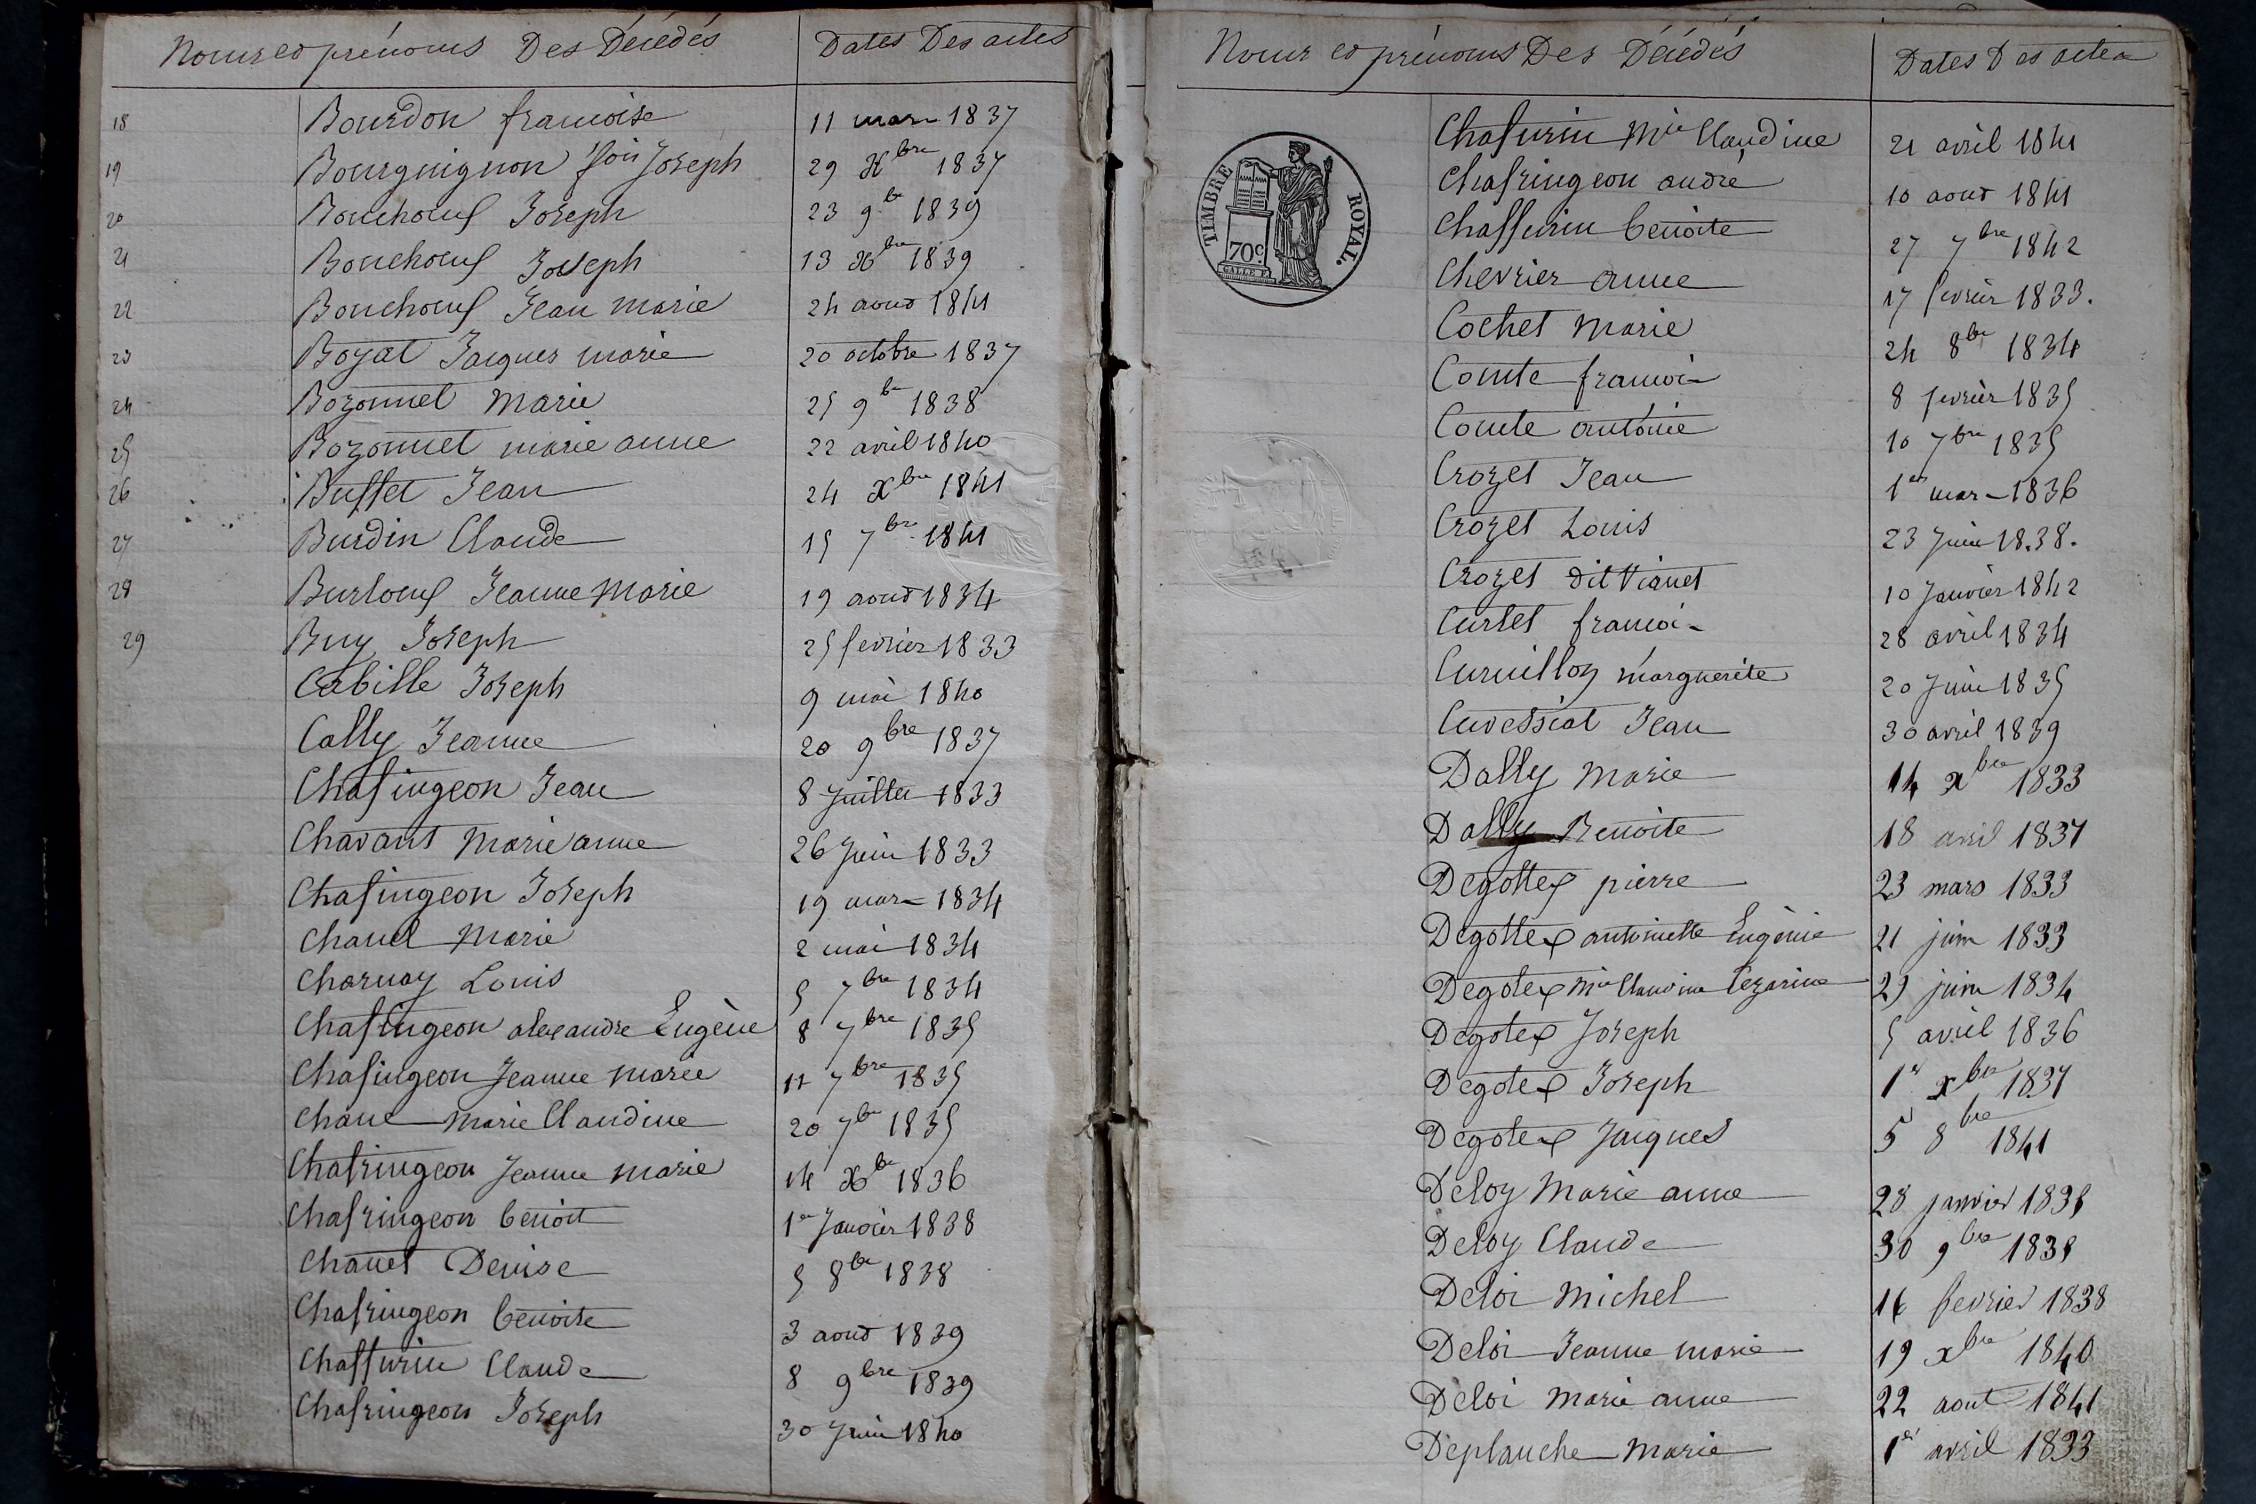 Noms et prénoms Des Décédés Dates Des actes
18 Bourdon francoise 11 mars 1837
19 Bourguignon fcois Joseph 29 Xbre 1837
20 Bouchoeuf Joseph 23 9bre 1839
21 Bouchoeuf Joseph 13 Xbre 1839
22 Bouchoeuf Jean marie 24 aout 1841
23 Boyat Jacques marie 20 octobre 1837
24 Bozonnet Marie 25 9bre 1838
25 Bozonnet marie anne 22 avril 1840
26 Buffet Jean 24 Xbre 1841
27 Burdin Claude 15 7bre 1841
28 Burloeuf Jeanne Marie 19 aout 1834
29 Buy Joseph 25 fevrier 1833
Cabille Joseph 9 mai 1840
Cally Jeanne 20 9bre 1837
Chafingeon Jean 8 Juillet 1833
Chavant Marie anne 26 Juin 1833
Chafingeon Joseph 19 mars 1834
Chanel Marie 2 mai 1834
Charnay Louis 5 7bre 1834
Chafingeon alexandre Eugène 8 7bre 1835
Chafingeon Jeanne marie 11 7bre 1835
Chanel marie Claudine 20 7bre 1835
Chafringeon Jeanne marie 14 Xbre 1836
Chafringeon benoit 1er Janvier 1838
Chanel Denise 5 8bre 1838
Chafringeon benoite 3 aout 1839
Chaffurin Claude 8 9bre 1839
Chafringeon Joseph 30 Juin 1840
Noms et prénoms Des Décédés Dates Des actes
TIMBRE ROYAL.
70c.
Chafurin Mie Claudine 21 avril 1841
Chafringeon andré 10 aout 1841
Chaffurin benoite 27 7bre 1842
Chevrier anne 17 fevrier 1833.
Cochet Marie 24 8bre 1834
Comte francois 8 fevrier 1835
Comte antoine 10 7bre 1835
Crozet Jean 1er mars 1836
Crozet Louis 23 Juin 18.38.
Crozet dit Vianet 10 Janvier 1842
Curtet francois 28 avril 1834
Curvillon marguerite 20 Juin 1835
Cuvessiat Jean 30 avril 1839
Dally Marie 14 xbre 1833
Dally Benoite 18 avril 1837
Degottex pierre 23 mars 1833
Degottex antoinette Eugènie 21 juin 1833
Degotex Mie Claudine Cezarine 29 juin 1834
Degotex Joseph 5 avril 1836
Degotex Joseph 1er xbre 1837
Degotex Jacques 5 8bre 1841
Deloy Marie anne 28 janvier 1838
Deloy Claude 30 9bre 1838
Deloi Michel 16 fevrier 1838
Deloi Jeanne marie 19 xbre 1840
Deloi Marie anne 22 aout 1841
Deplanche Marie 1er avril 1833